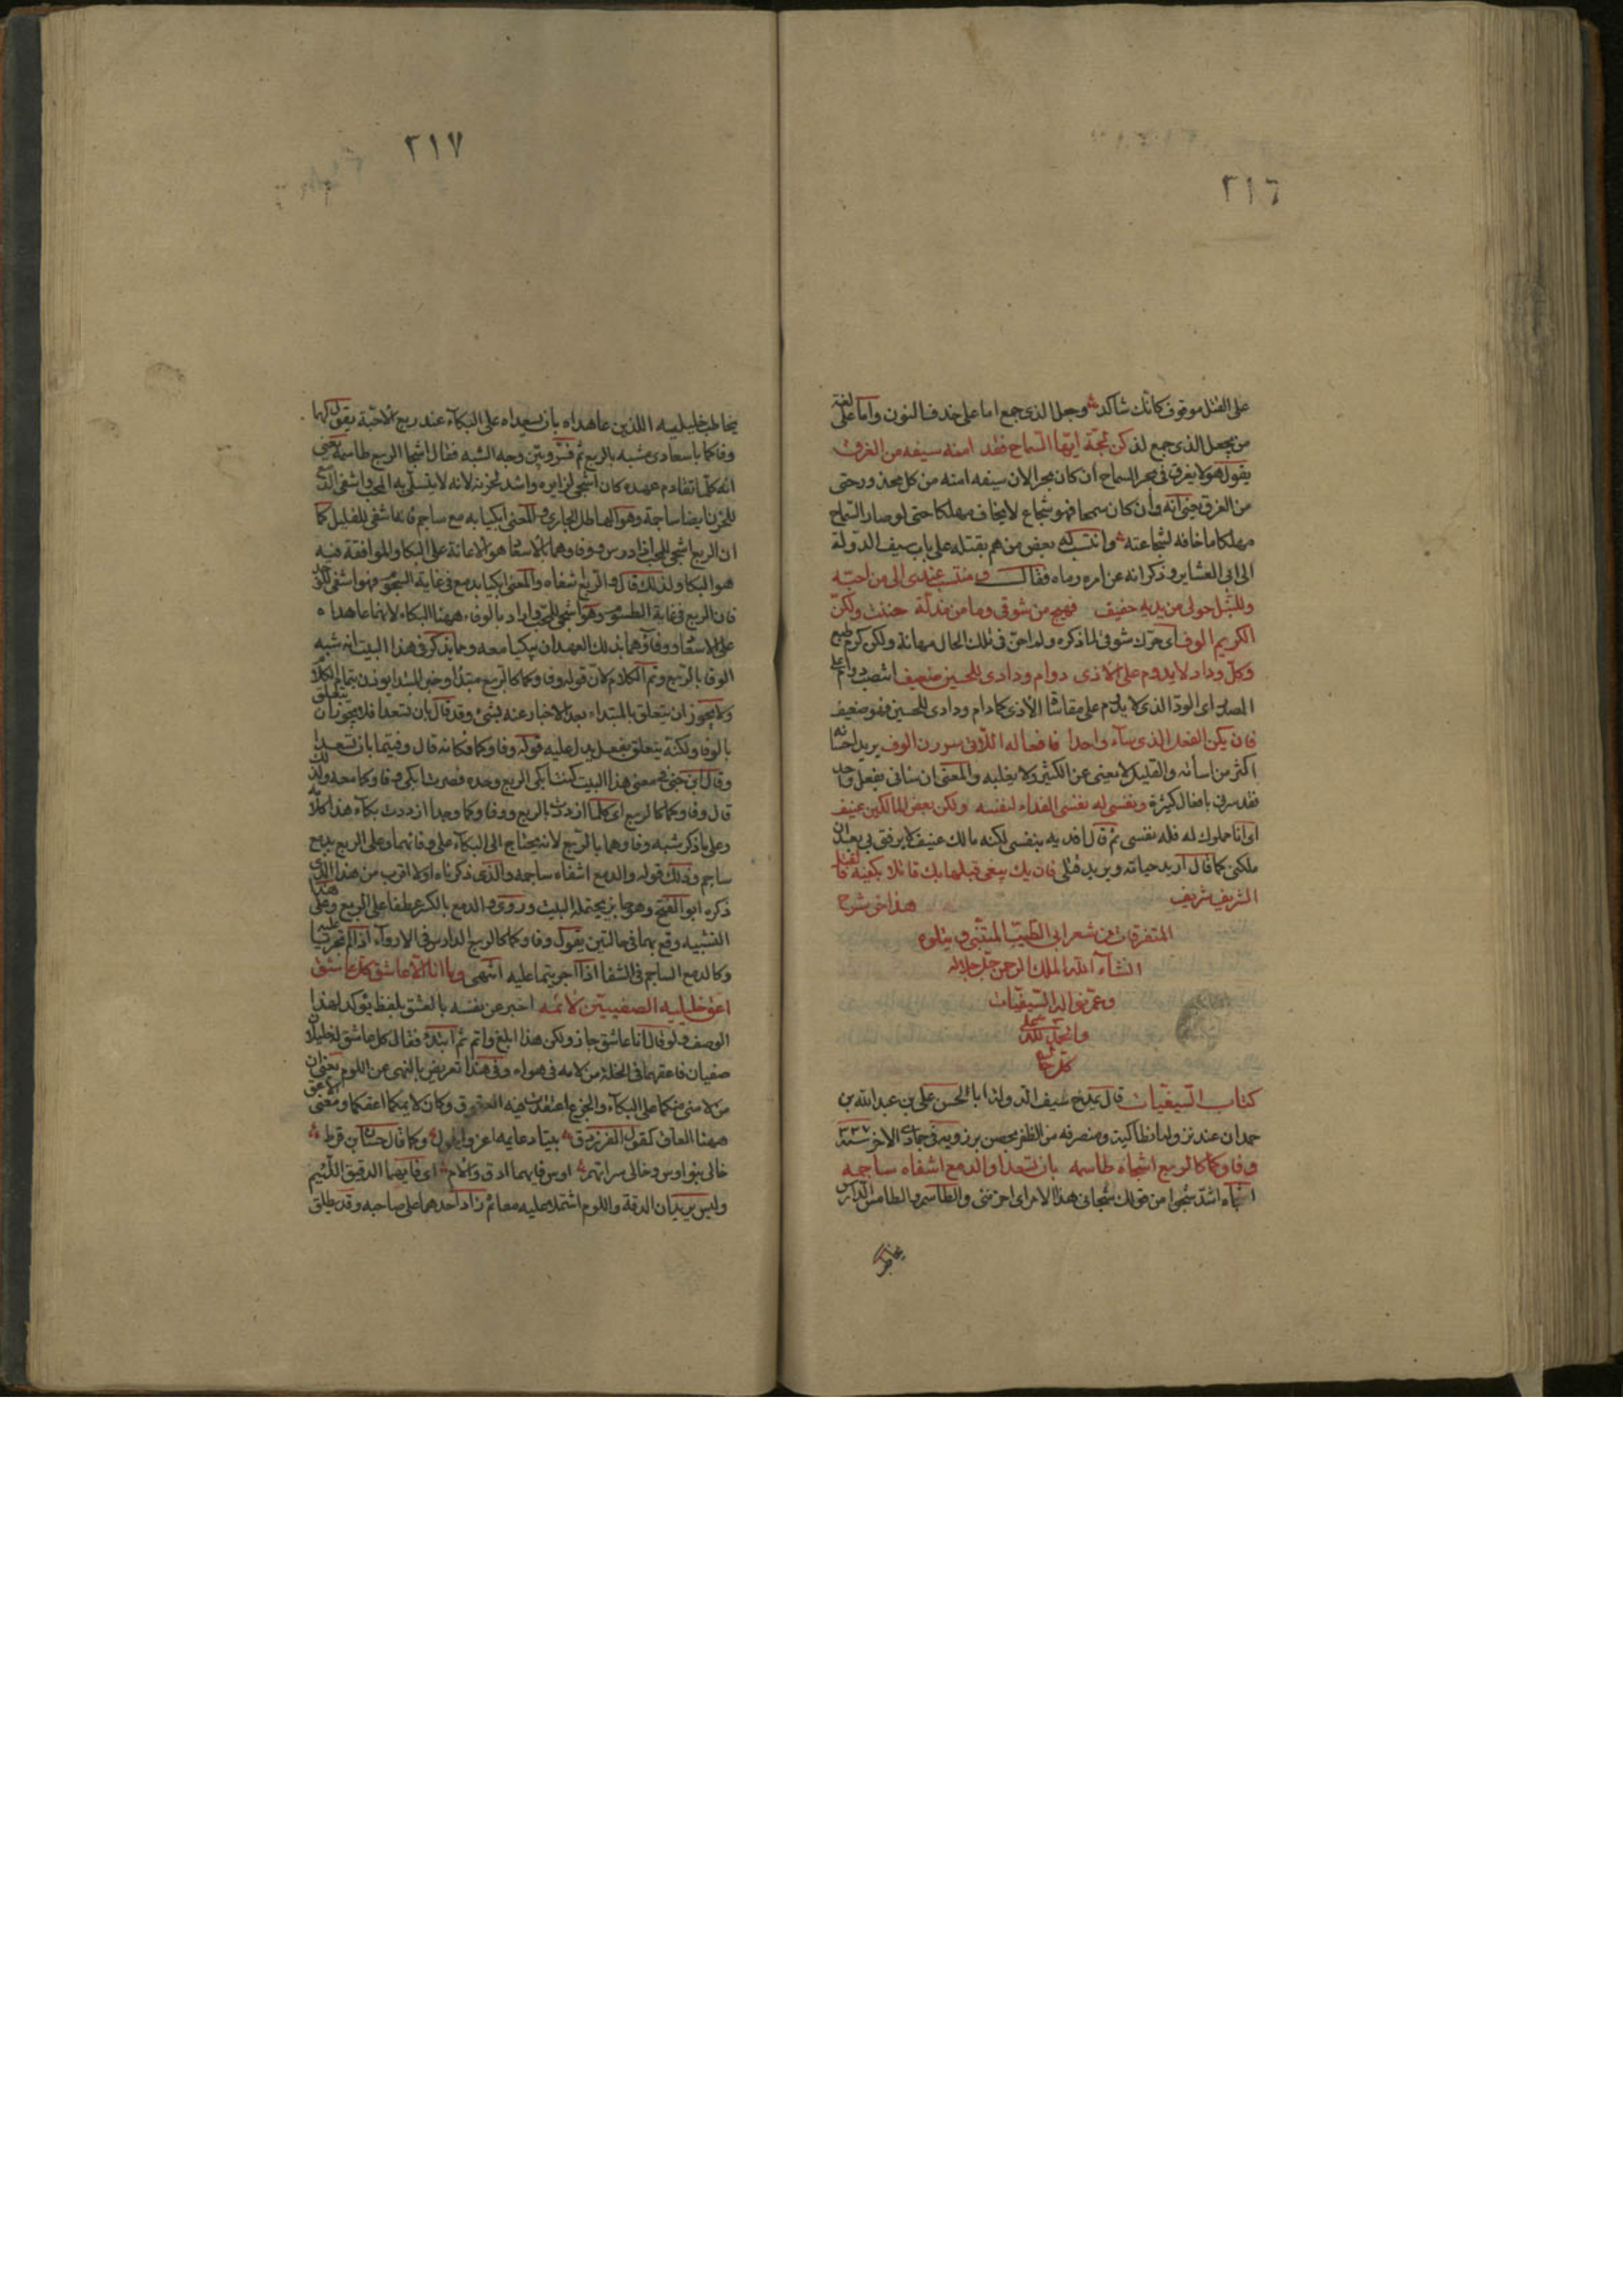 ٢١٦
على القتل موقوف كانك شاكد وجعل الذى جمع اما على حذف النون واما على لغة
من يجعل الذى جمع لذ كن لجّة ايها السماح فقد امنه سيفه من الغرق
يقول هو لا يغرق فى بحر السماح ان كان بحرا لان سيفه امنه من كل محذور حتى
من الغرق يعنى انه وان كان سمحا فهو شجاع لا يخاف مهلكا حتى لو صار السماح
مهلكا ما خافه لشجاعته وانتسب له بعض من هم بقتله على باب سيف الدولة
الى ابى العشاير وذكر انه عن امره رماه فقال ومنتسب عندى الى من احبّه
وللنبل حولى من يديه حفيف فهيج من شوقى وما من مذلّة حننت ولكنّ
الكريم الوف اى حرّك شوقى لما ذكره ولم احنّ فى تلك الحال مهانة ولكن كرم طبع
وكلّ وداد لا يدوم على الاذى دوام ودادى للحسين ضعيف انتصب دوام على
المصدر اى الودّ الذى لا يدوم على مقاساة الاذى كما دام ودادى للحسين فهو ضعيف
فان يكن الفعل الذى ساء واحدا فافعاله اللائى سررن الوف يريد احسانه
اكثر من اساءته والقليل لا يعنى عن الكثير ولا يغلبه والمعنى ان ساءنى بفعل واحد
فقد سرنى بافعال كثيرة ونفسى له نفسى الفداء لنفسه ولكن بعض المالكين عنيف
اى انا مملوك له فله نفسى ثم قال افديه بنفسى لكنه مالك عنيف لا يرفق بى بعد ان
ملكنى كما قال اريد حياته ويريد قتلى فان يك يبغى قبلها بك قاتلا بكفيه فالقتل
الشريف شريف هذا اخر شرح
المتفرقات من شعر ابى الطيب المتنبى ويتلوه
انشاء الله الملك الرحمن جل جلاله
وعم نواله السيفيات
والحمد لله على
كل حال
كتاب السيفيات قال يمدح سيف الدولة ابا الحسن على بن عبد الله بن
حمدان عند نزوله انطاكية ومنصرفه من الظفر بحصن برزويه فى جمادى الاخر سنة ٣٣٧
وفاؤكما كالربع اشجاه طاسمه بان تسعدا والدمع اشفاه ساجمه
اشجاه اشدّ شجوا من قولك شجانى هذا الامر اى احزننى والطاسم والطامس الدارس
يخاطب
٢١٧
يخاطب خليليه اللذين عاهداه بان يسعداه على البكاء عند ربع الاحبّة يقول لهما
وفاؤكما باسعادى مشبه بالربع ثم فسّر وبيّن وجه الشبه فقال اشجا الربع طاسمه يعنى
انه كلّما تقادم عهده كان اشجى لزايره واشد لحزنه لانه لا يتسلّى به المحب واشفى الدمع
للحزن ايضا ساجمه وهو الهاطل الجارى والمعنى ابكيا به مع ساجم فانه اشفى للغليل كما
ان الربع اشجى للمحب اذا درس ووفاؤهما بالاسعاد هو الاعانة على البكا والموافقة فيه
هو البكا ولذلك قال والدمع شفاه والمعنى ابكيا بدمع فى غاية السجوم فهو اشفى للوجد
فان الربع فى غاية الطسوم وهو اشجى للمحبّ واراد بالوفاء ههنا البكاء لانهما عاهداه
على الاسعاد ووفاؤهما بذلك العهد ان يبكيا معه ومما يذكر فى هذا البيت انه شبه
الوفا بالربع وتم الكلام لان قوله وفاؤكما كالربع مبتدا وخبر المبتدا يوذن بتمام الكلام
ولا يجوز ان يتعلق بالمبتداء بعد الاخبار عنه بشئ وقد قال بان تسعدا فلا يجوز ان يتعلق
بالوفا ولكنه يتعلق بفعل يدل عليه قوله وفاؤكما فكانه قال وفيتما بان تسعدا
وقال ابن جنى معنى هذا البيت كنت ابكى الربع وحده فصرت ابكى وفاؤكما معه ولذلك
قال وفاؤكما كالربع اى كلما ازددت بالربع ووفاؤكما وجدا ازددت بكاء هذا كلامه
وعلى ما ذكر شبه وفاؤهما بالربع لانه يحتاج الى البكاء على وفائهما وعلى الربع بدمع
ساجم وذلك قوله والدمع اشفاه ساجمه والذى ذكرناه اولا اقرب من هذا الذى
ذكره ابو الفتح وهو جايز يحتمله البيت وروى والدمع بالكسر عطفا على الربع وعلى هذا
التشبيه وقع بهما فى حالتين يقول وفاؤكما كالربع الدارس فى الادواء اذا لم تجريا عليه
وكالدمع الساجم فى الشفا اذا اجريتما عليه انتهى وما انا الا عاشق كل عاشق
اعق خليليه الصفيين لائمه اخبر عن نفسه بالعشق بلفظ يوكد لهذا
الوصف ولو قال انا عاشق جاز ولكن هذا ابلغ واتم ثم ابتدء فقال كل عاشق له خليلان
صفيان فاعقهما فى الخلة من لامه فى هواه وفى هذا تعريض بالنهى عن اللوم يعنى ان
من لامنى منكما على البكاء والجزع اعتقدت فيه العقوق وكان لائمكما اعقكما ومعنى الاعق
ههنا العاق كقول الفرزدق بيتا دعايمه اعز واطول وكما قال حسان بن قرط
خالى بنو اوس وخالى سراتهم اوس فايهما ادق والام اى فايهما الدقيق اللئيم
وليس يريد ان الدقة واللوم اشتملا عليه معا ثم زاد احدهما على صاحبه وقد يطلق